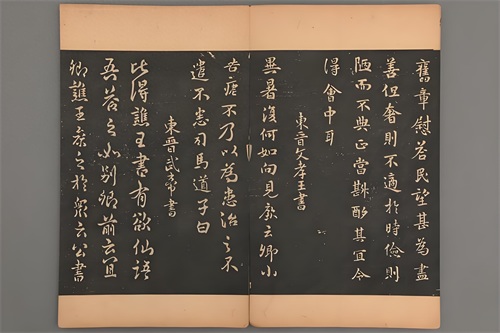 舊章慰若民望甚為盡
善但奢則不適於時儉則
陋而不典正當斟酌其宜令
得會中耳
東晉文孝王書
異暑復何如向見敎云卿小
苦疾不乃以為患治之不
遣不悉司馬道子白
東晉武帝書
此得譙王書有欲仙語
吾答之如別卿前云宜
卿譙王廢之於衆云公書